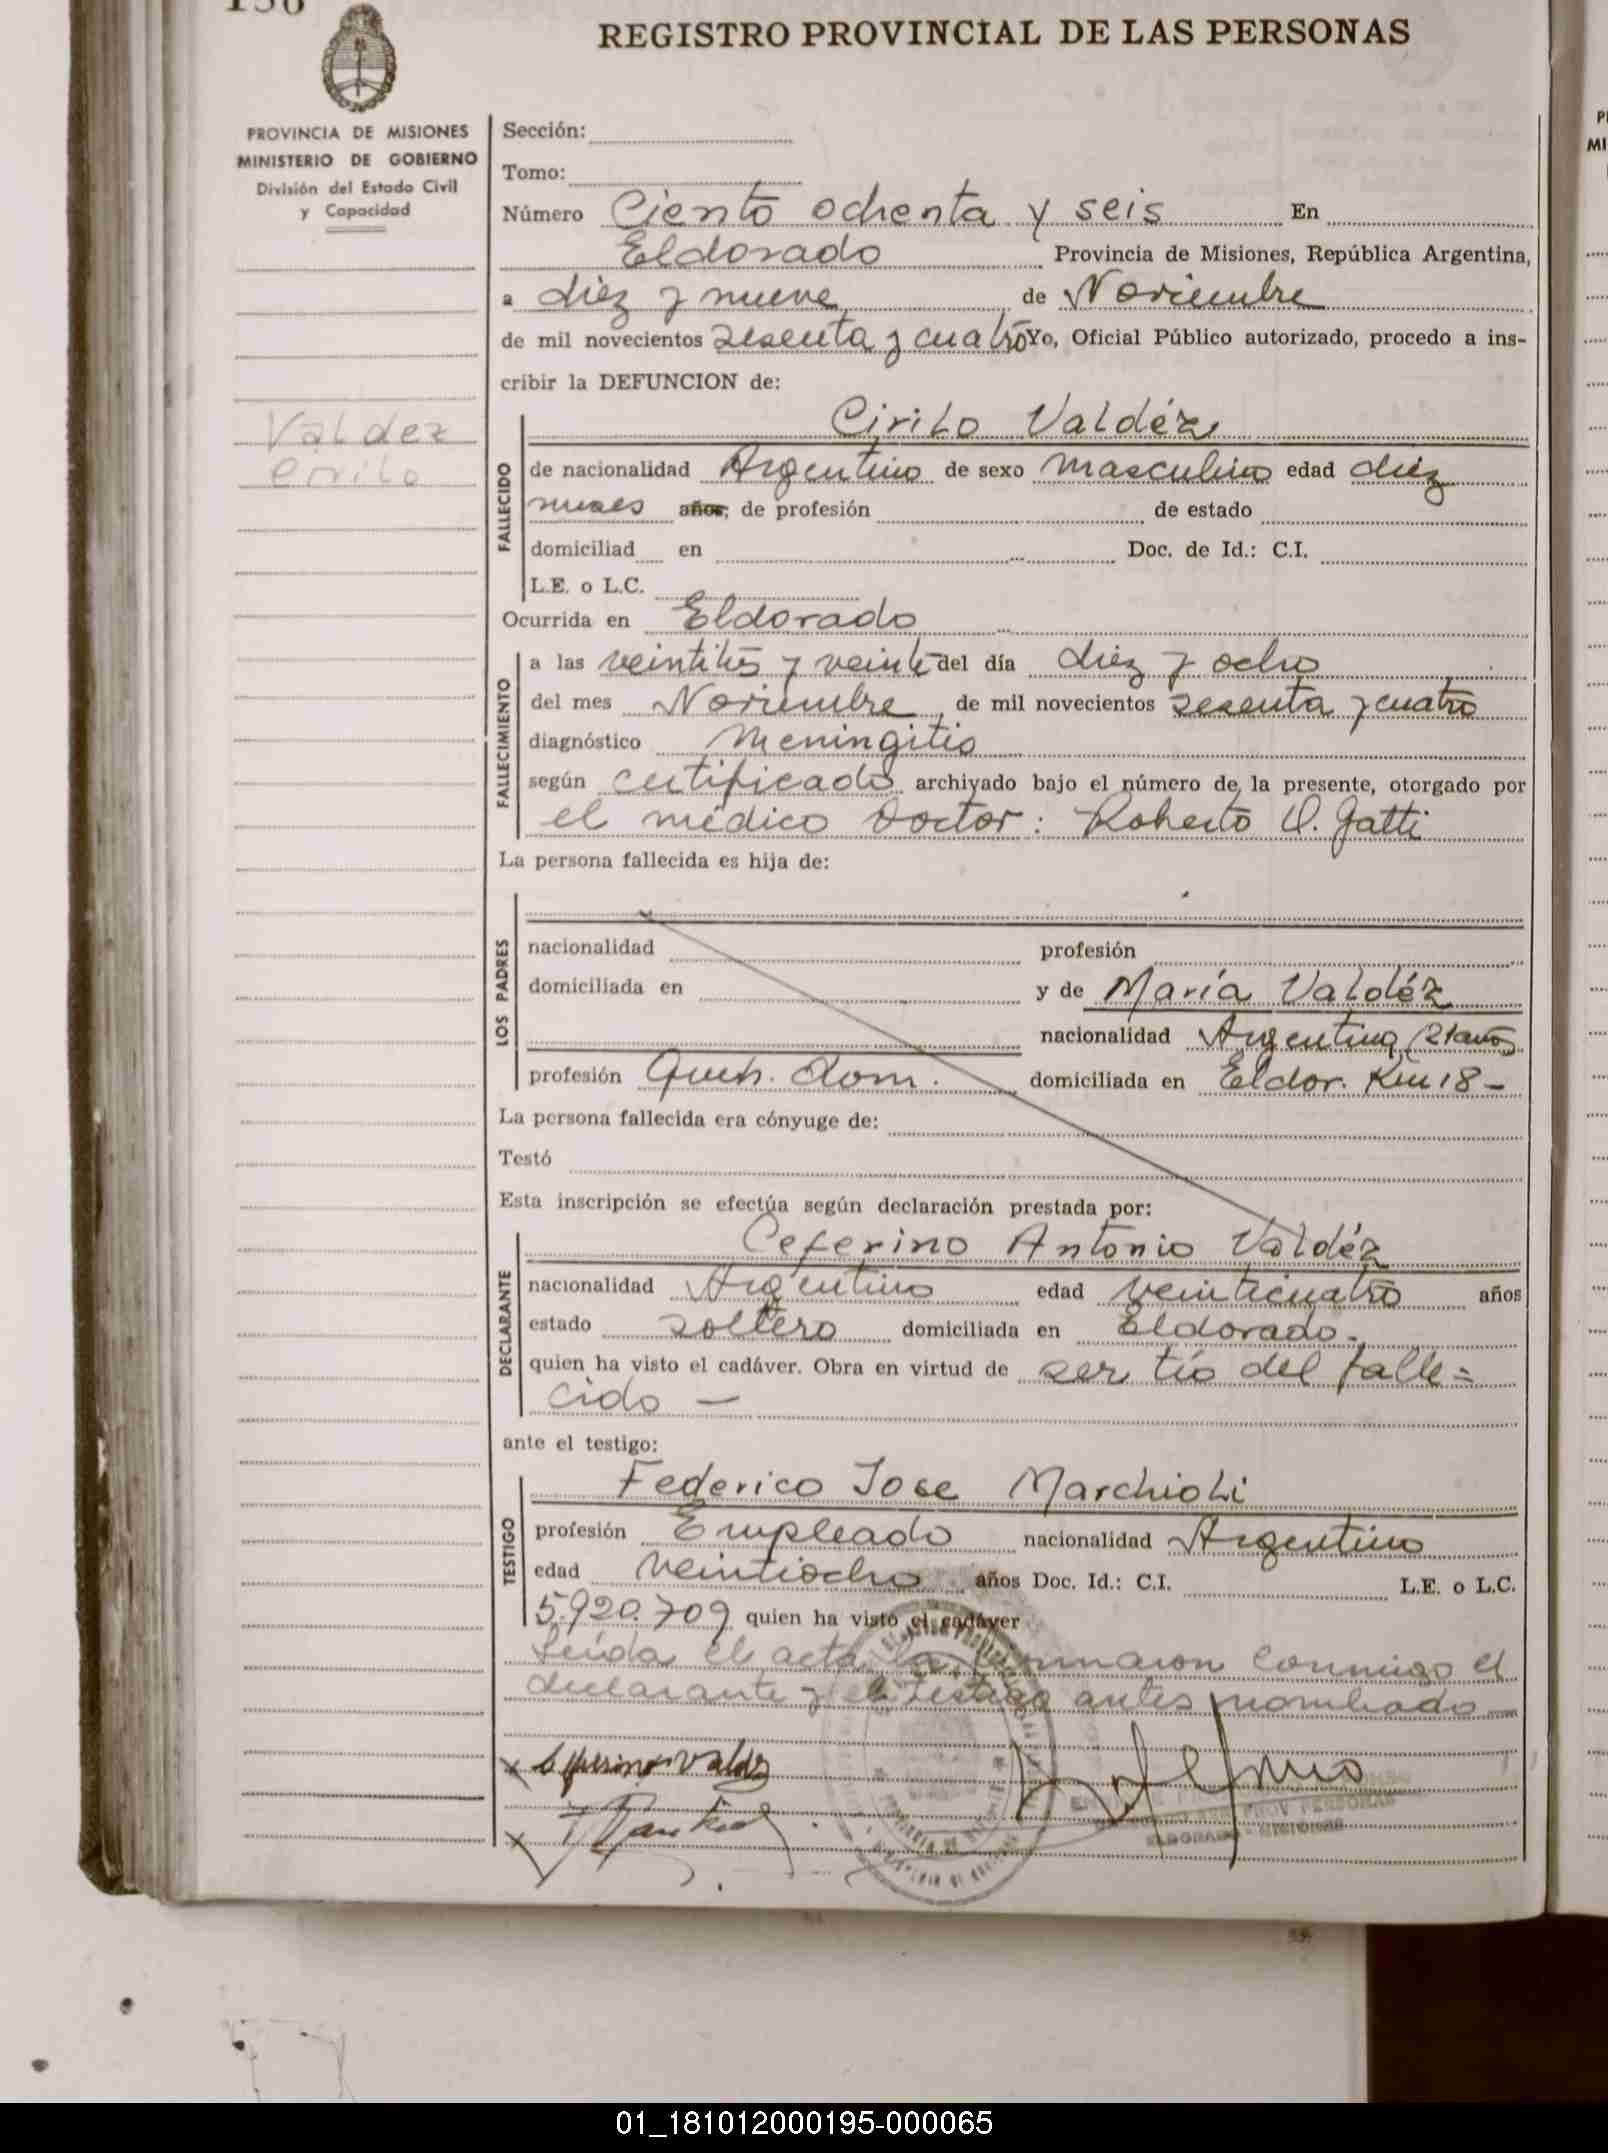 REGISTRO PROVINCIAL DE LAS PERSONAS
PROVINCIA DE MISIONES
MINISTERIO DE GOBIERNO
División del Estado Civil
y Capacidad
Valdez
Cirilo
Sección:
Tomo:
Número Ciento ochenta y seis En
Eldorado Provincia de Misiones, República Argentina,
a diez y nueve de Noviembre
de mil novecientos sesenta y cuatro Yo, Oficial Público autorizado, procedo a ins-
cribir la DEFUNCION de:
FALLECIDO
Cirilo Valdéz
de nacionalidad Argentino de sexo masculino edad diez
meses años, de profesión de estado
domiciliad en Doc. de Id.: C.I.
L.E. o L.C.
Ocurrida en Eldorado
FALLECIMIENTO
a las veintitrés y veinte del día diez y ocho
del mes Noviembre de mil novecientos sesenta y cuatro
diagnóstico Meningitis
según certificado archivado bajo el número de la presente, otorgado por
el médico Doctor: Roberto Gatti
La persona fallecida es hija de:
LOS PADRES
nacionalidad profesión
domiciliada en y de María Valdéz
nacionalidad Argentina (21 años)
profesión Queh. dom. domiciliada en Eldor. Km 18 -
La persona fallecida era cónyuge de:
Testó
Esta inscripción se efectúa según declaración prestada por:
DECLARANTE
Ceferino Antonio Valdéz
nacionalidad Argentino edad veinticuatro años
estado soltero domiciliada en Eldorado.
quien ha visto el cadáver. Obra en virtud de ser tío del falle=
cido -
ante el testigo:
TESTIGO
Federico Jose Marchioli
profesión Empleado nacionalidad Argentino
edad veintiocho años Doc. Id.: C.I. L.E. o L.C.
5.920.709 quien ha visto el cadáver
Leída el acta la firmaron conmigo el
declarante y el testigo antes nombrado
Valdez
ELDORADO - MISIONES
01_181012000195-000065